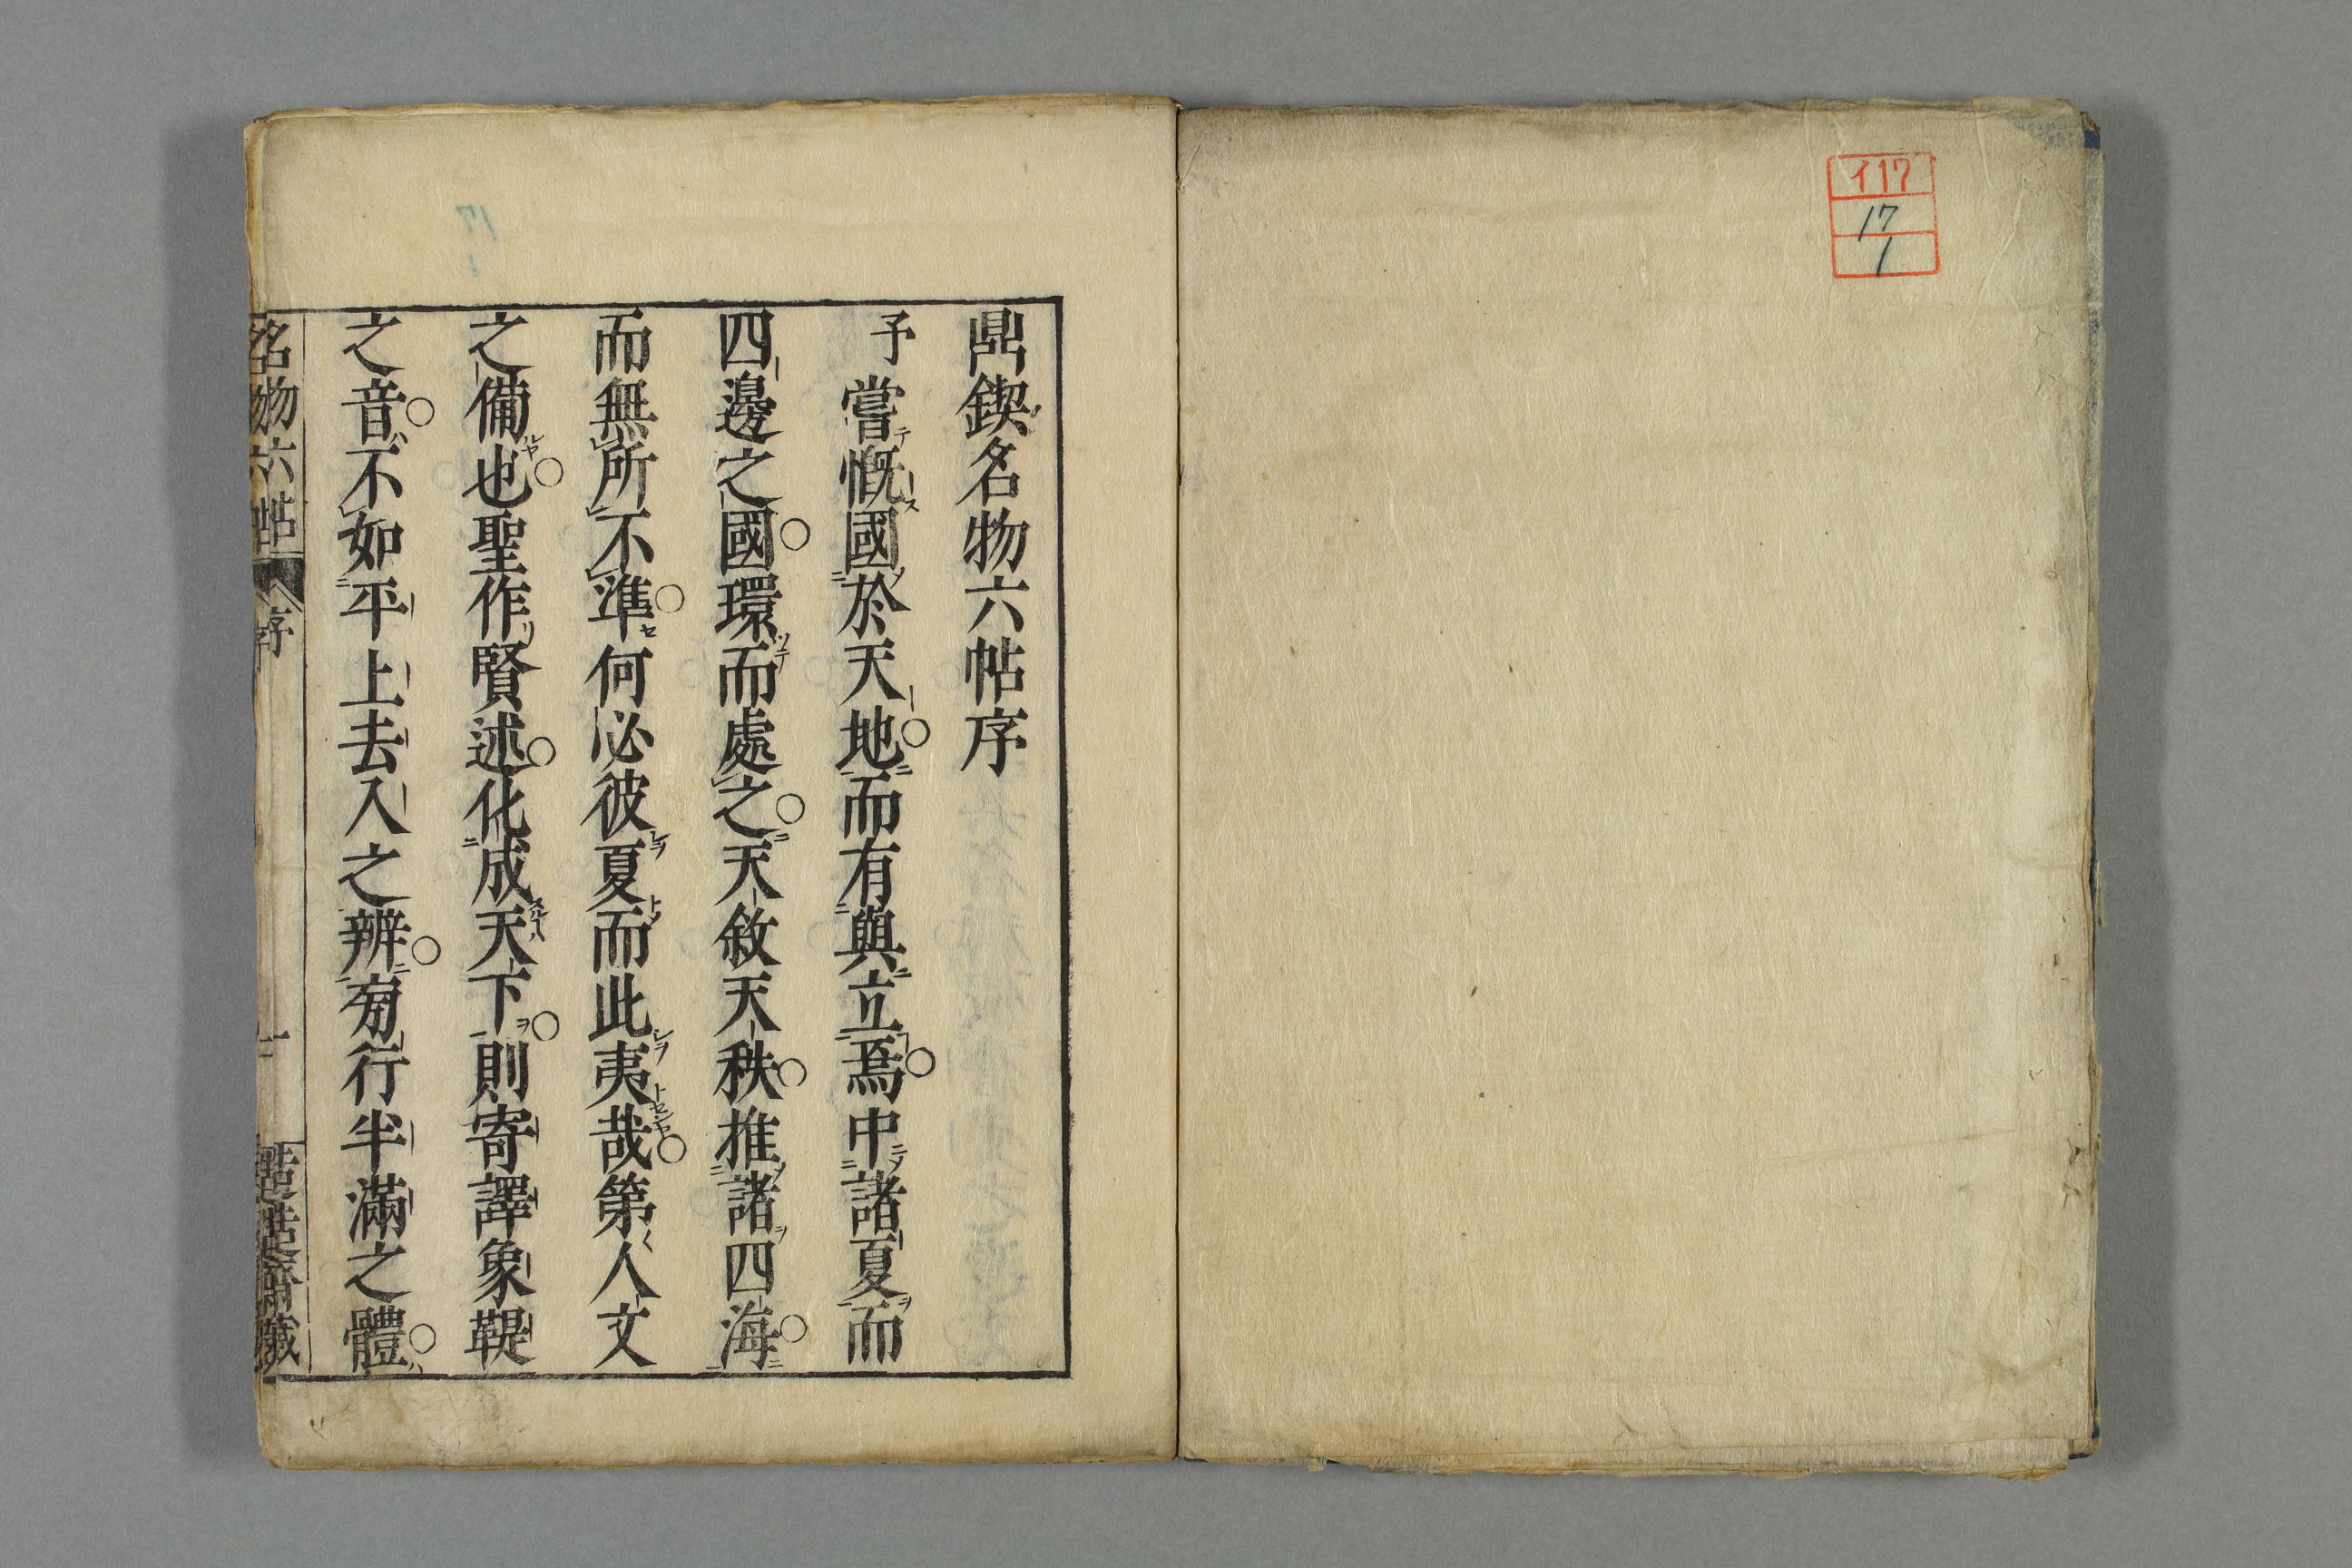 イ17
17
1
鼎鍥名物六帖序
予嘗慨國於天地而有與立焉中諸夏而
四邊之國環而處之天敘天秩推諸四海
而無所不準何必彼夏而此夷哉第人文
之備也聖作賢述化成天下則寄譯象鞮
之音不如平上去入之辨旁行半滿之體
名物六帖 序 一